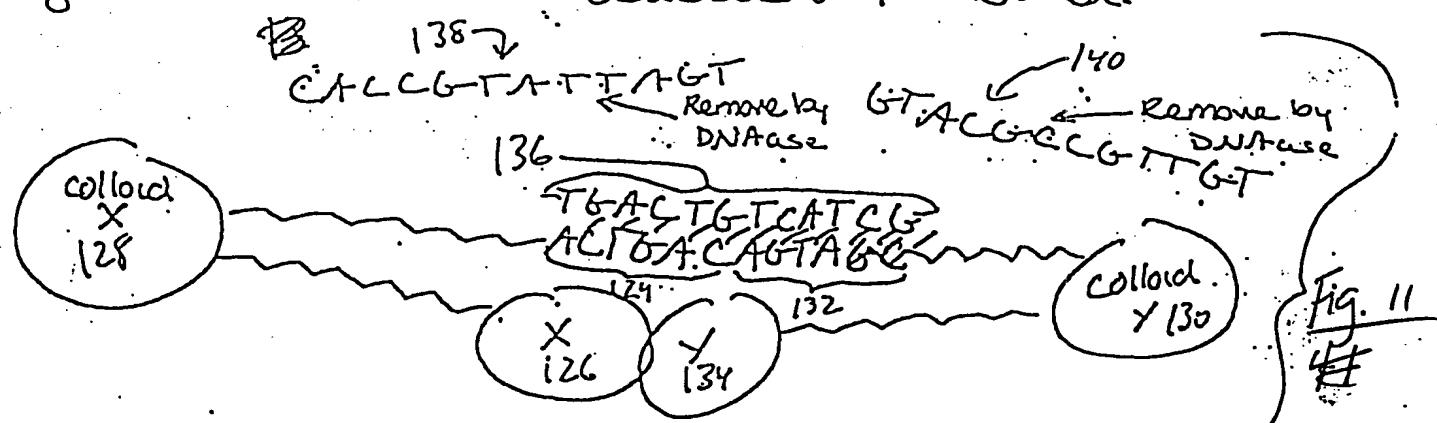 138
CACCGTATTAGT
Remove by
DNAase
140
GTACGCCGTTGT
Remove by
DNAase
136
colloid
X
128
TGACTGTCATCG
ACTGACAGTAGC
124
132
colloid
Y 130
X
126
Y
134
Fig. 11